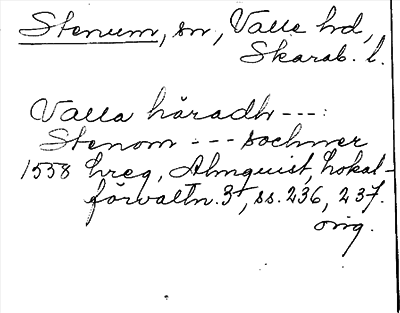 Stenum, sn, Valle hd,
Skarab. l.
Valla häradh ---:
Stenom --- sochner
1558 hreg, Almquist, Lokal-
förvaltn. 3, ss. 236, 237.
orig.